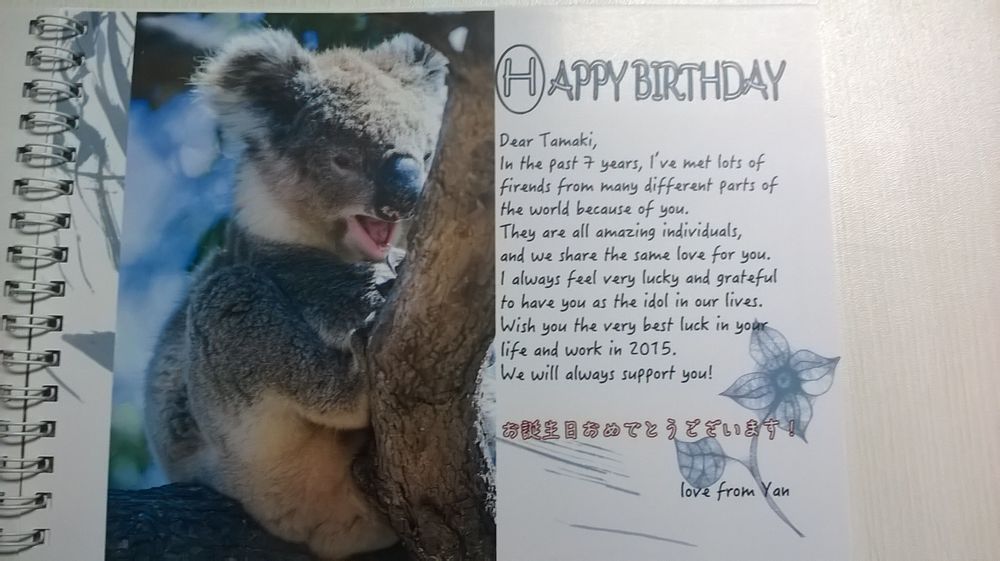 HAPPY BIRTHDAY
Dear Tamaki,
In the past 7 years, I've met lots of
firends from many different parts of
the world because of you.
They are all amazing individuals,
and we share the same love for you.
I always feel very lucky and grateful
to have you as the idol in our lives.
Wish you the very best luck in your
life and work in 2015.
We will always support you!
お誕生日おめでとうございます！
love from Yan